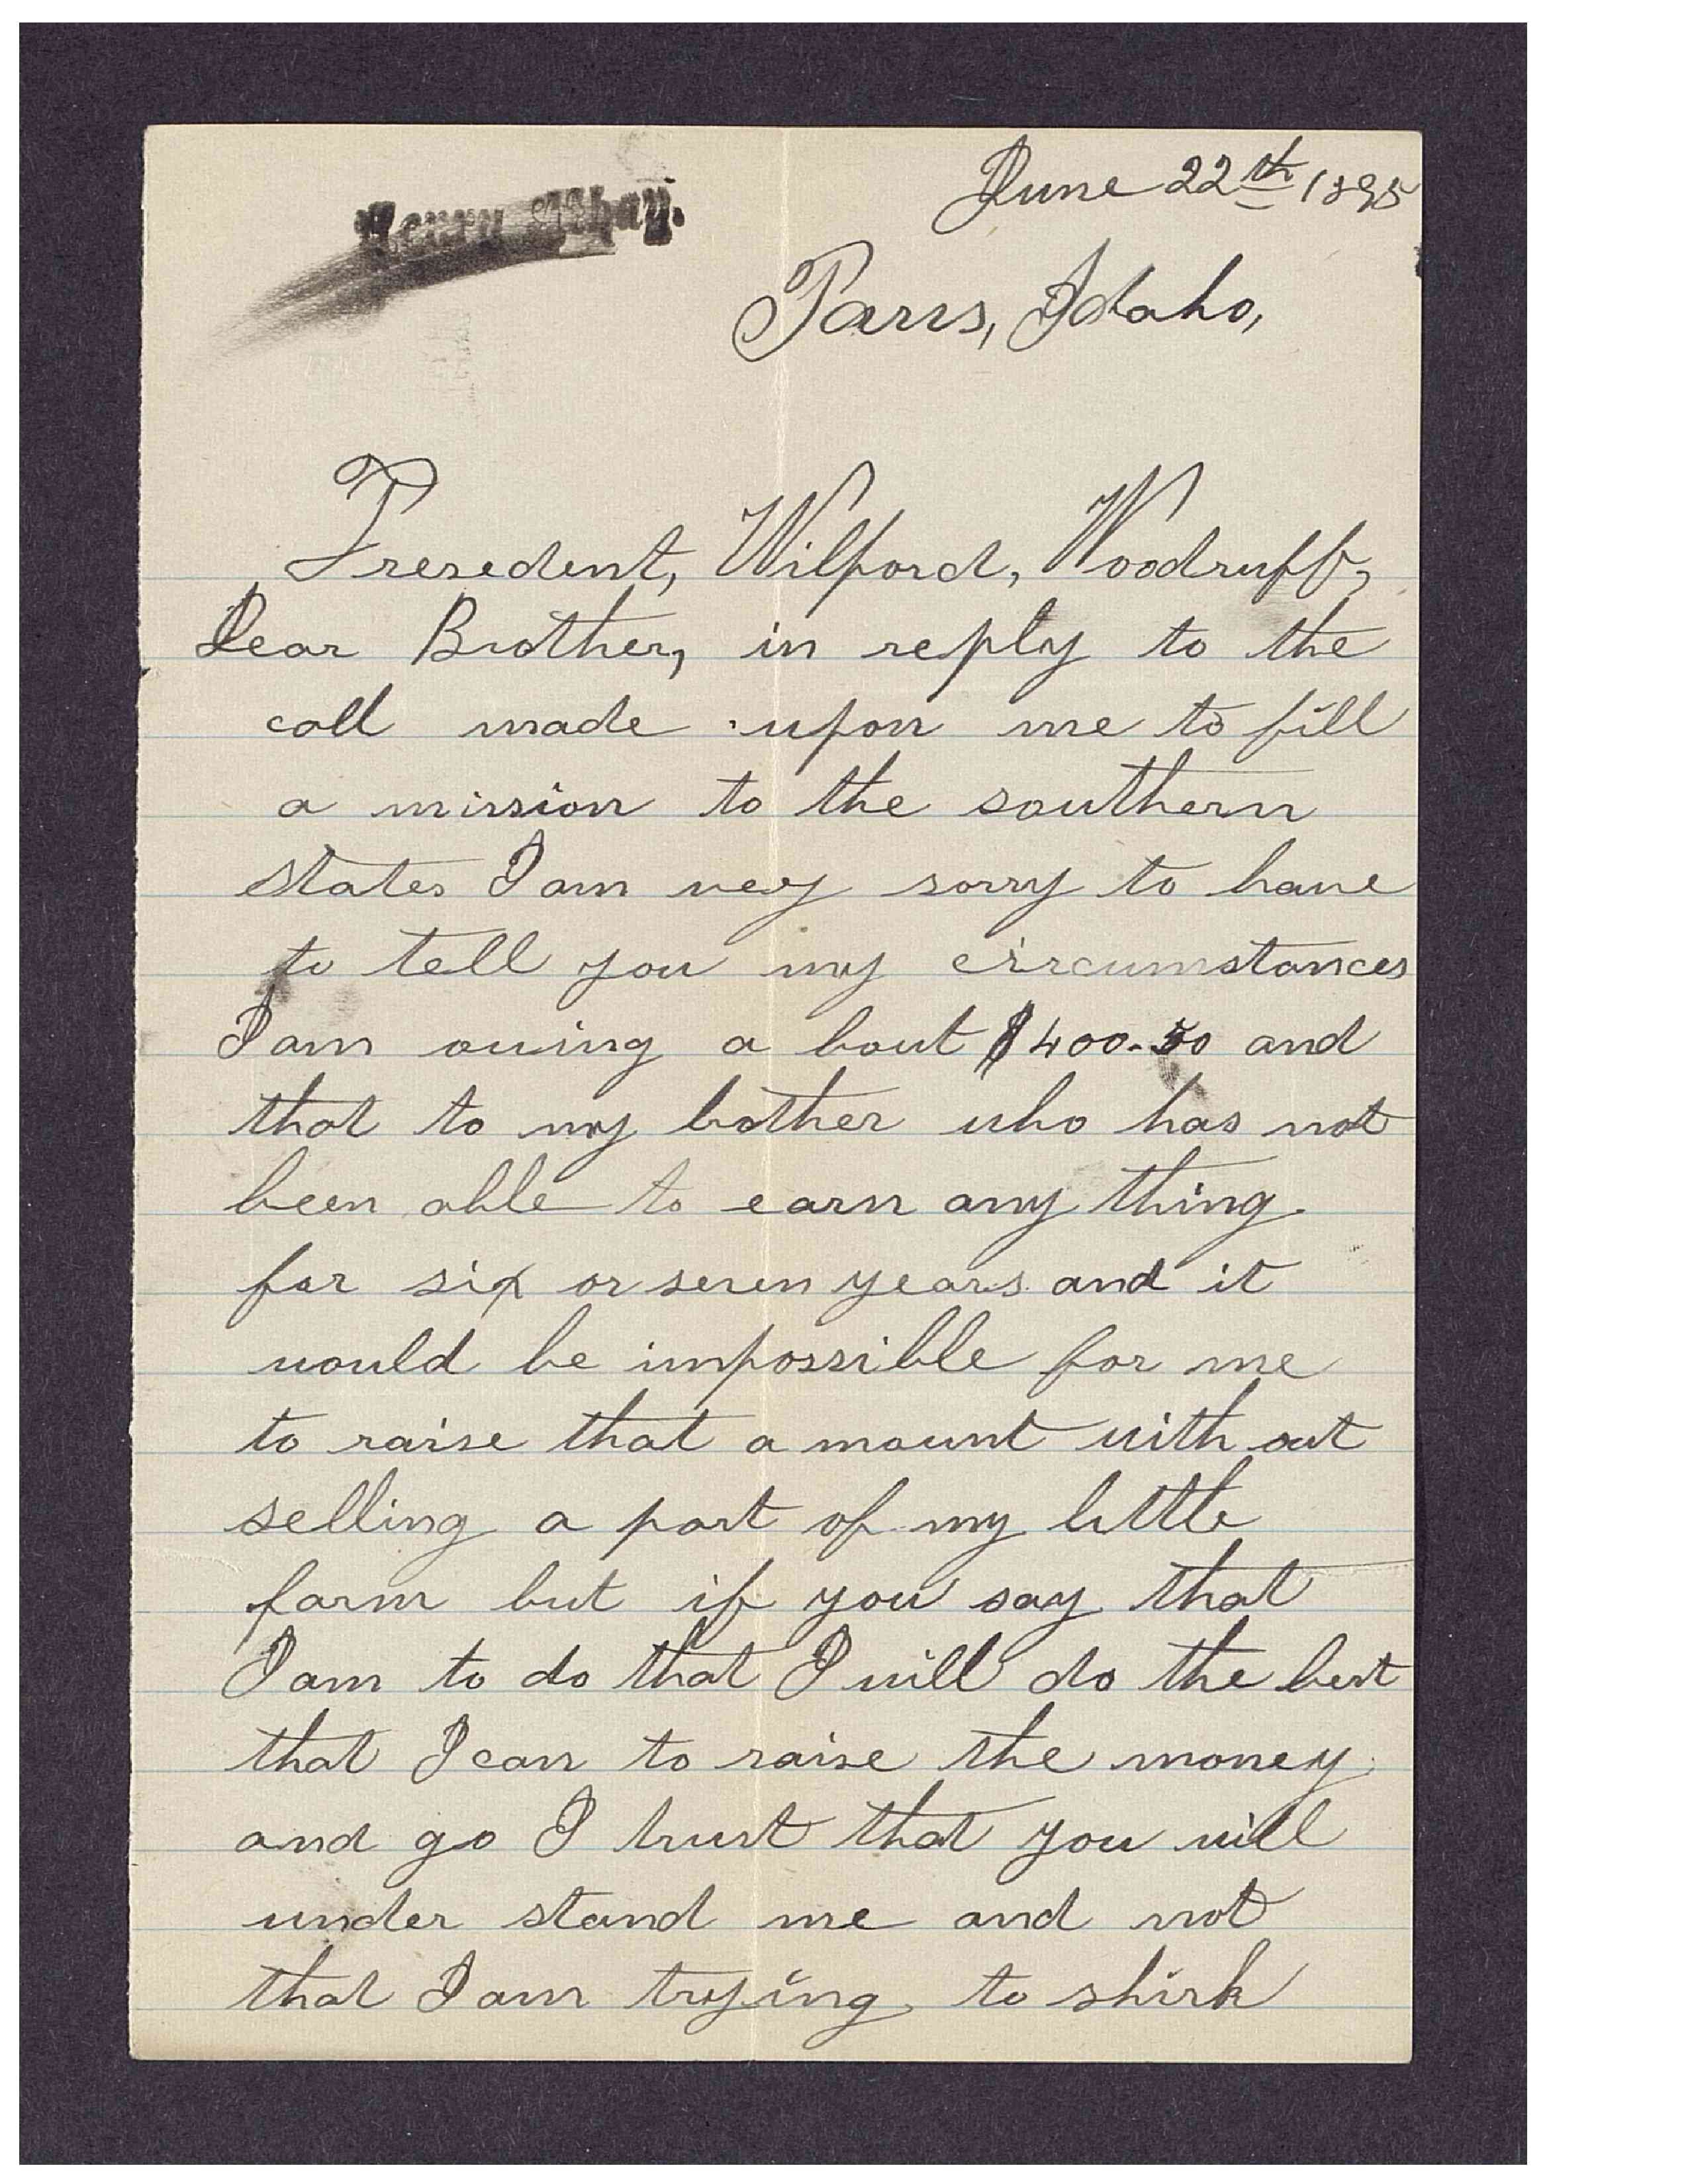 June 22th 1895
Henry
Paris, Idaho,
Presedent, Wilford, Woodruff,
Dear Brother, in reply to the
call made upon me to fill
a mission to the southern
states I am very sorry to have
to tell you my circumstances
I am owing a bout $400.50 and
that to my bother who has not
been able to earn any thing
for six or seven years and it
would be impossible for me
to raise that a mount with out
selling a part of my little
farm but if you say that
I am to do that I will do the best
that I can to raise the money
and go I trust that you will
under stand me and not
that I am trying to shirk